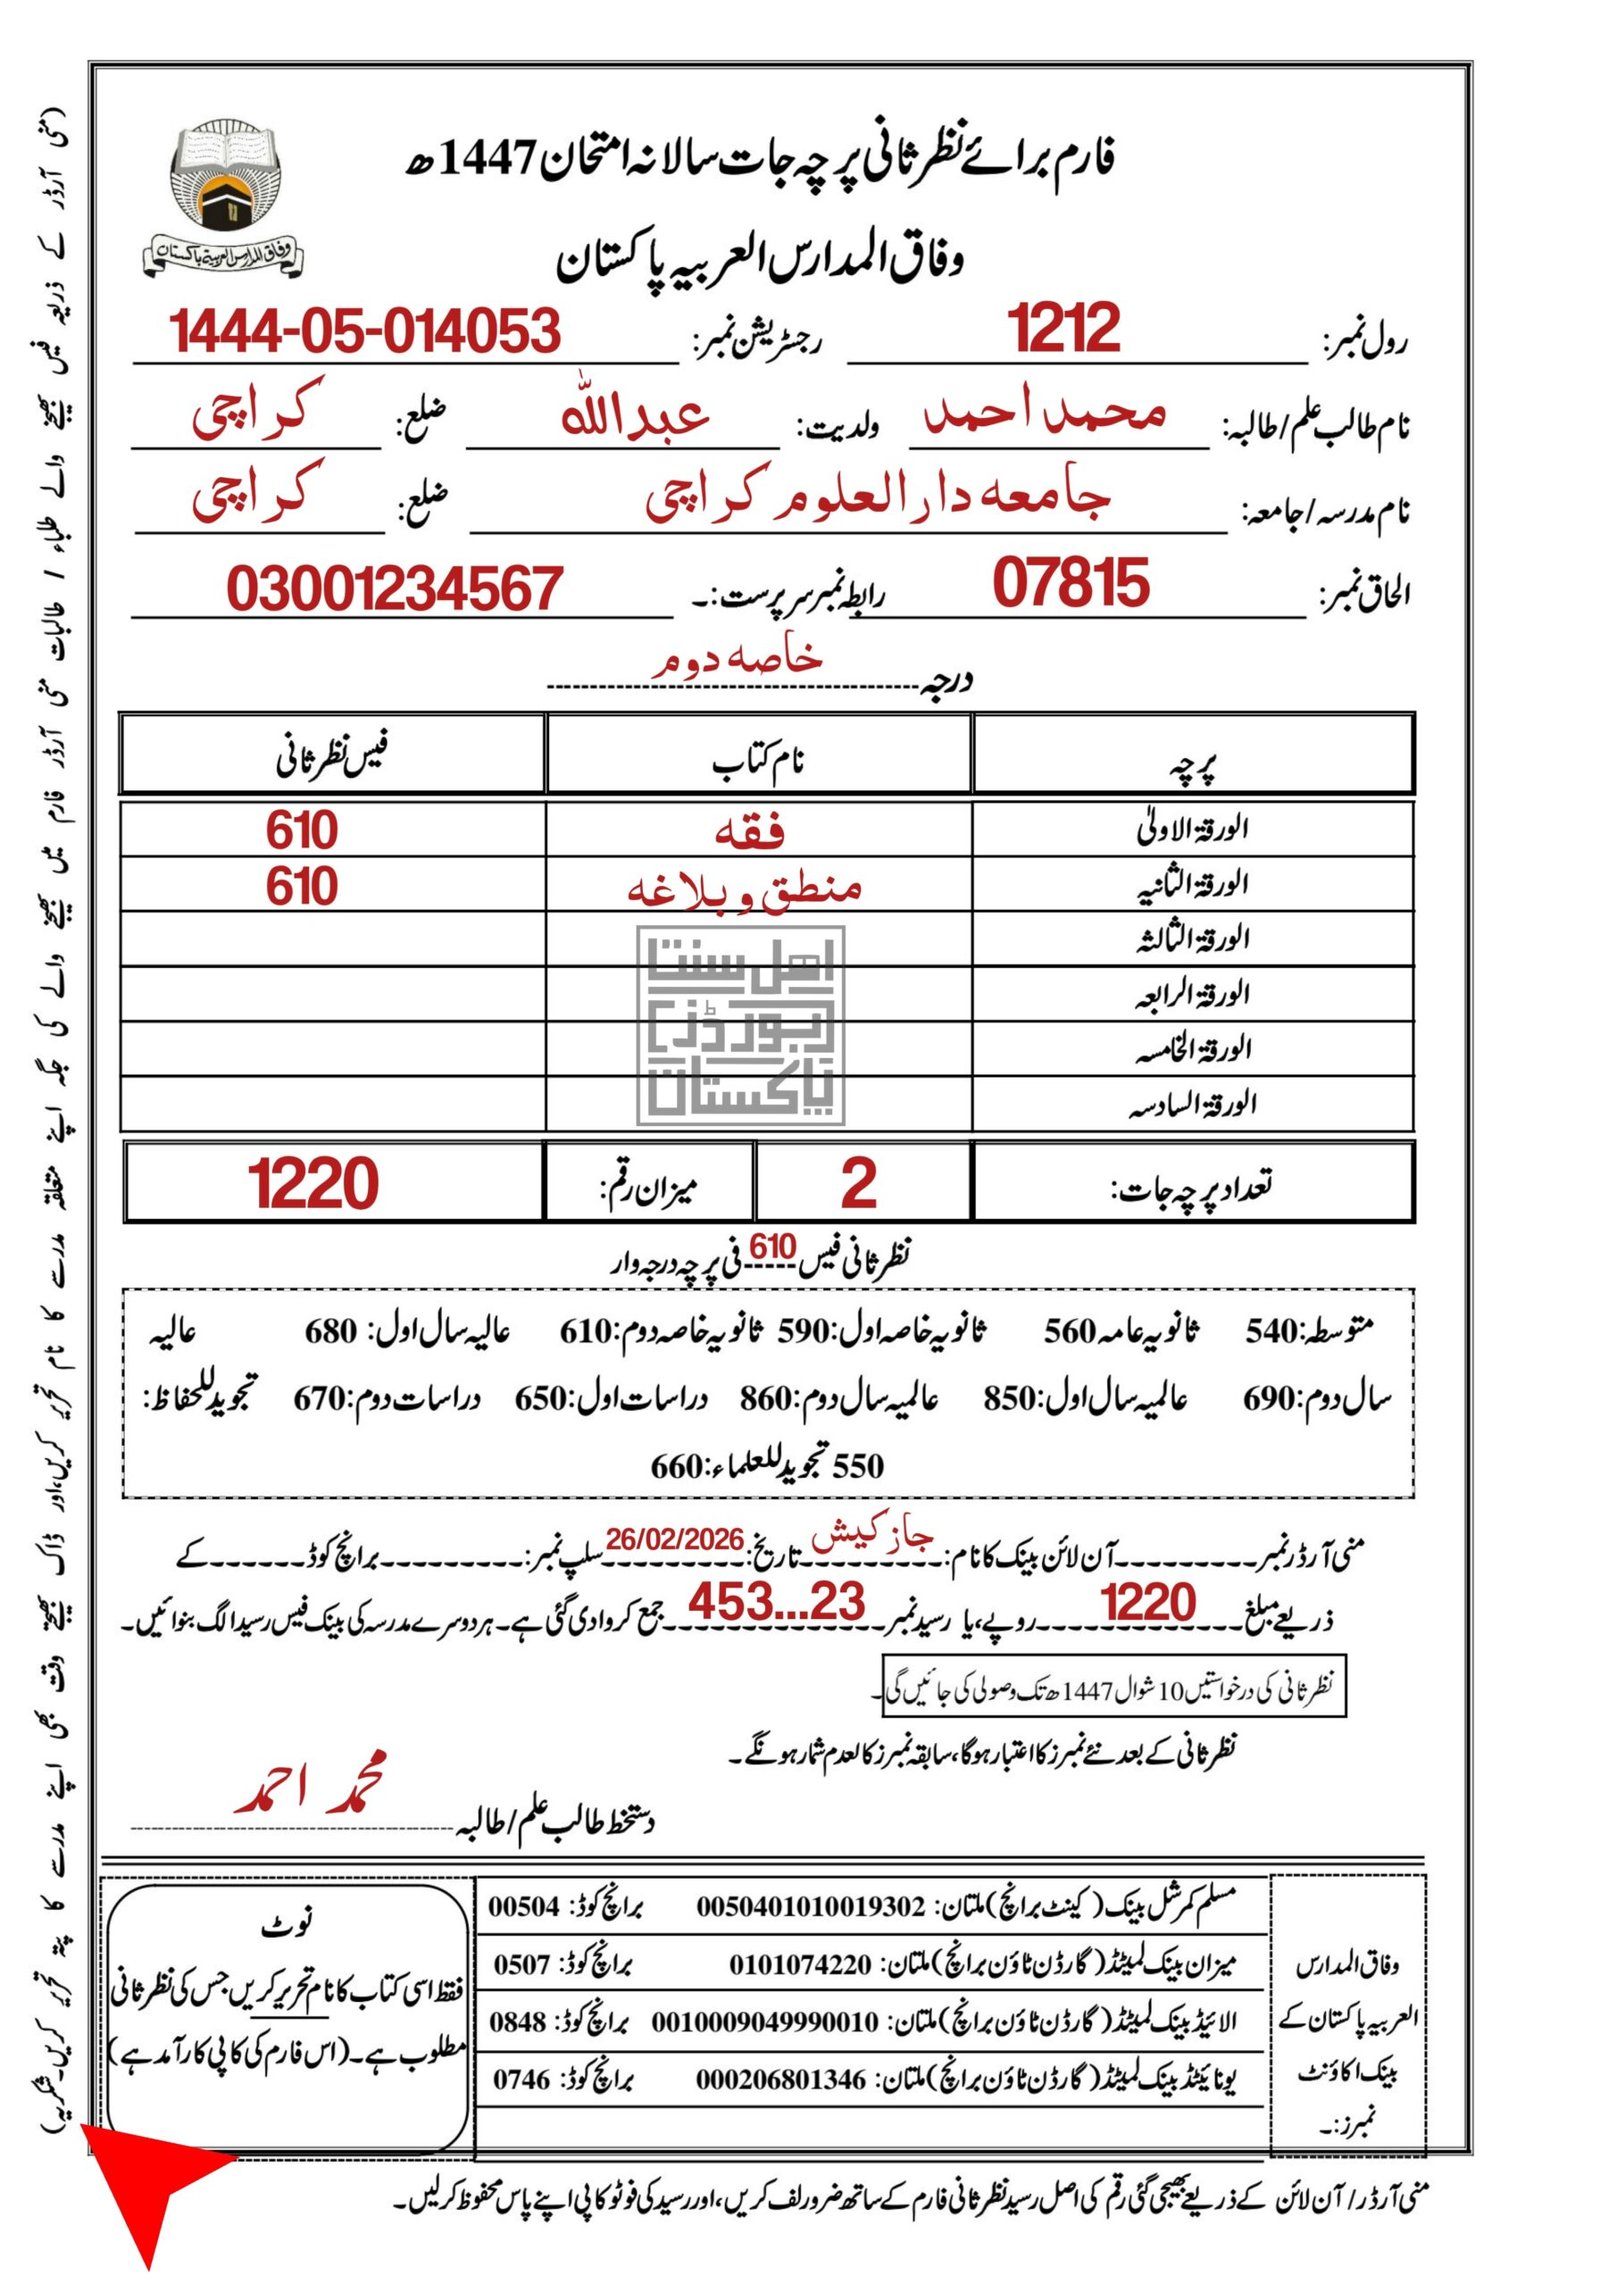 فارم برائے نظر ثانی پرچہ جات سالانہ امتحان 1447ھ
وفاق المدارس العربیہ پاکستان
وفاق المدارس العربیہ پاکستان
رول نمبر: 1212 رجسٹریشن نمبر: 1444-05-014053
نام طالب علم/طالبہ: محمد احمد ولدیت: عبداللہ ضلع: کراچی
نام مدرسہ/جامعہ: جامعہ دارالعلوم کراچی ضلع: کراچی
الحاق نمبر: 07815 رابطہ نمبر سرپرست:۔ 03001234567
درجہ خاصہ دوم
پرچہ نام کتاب فیس نظر ثانی
الورقۃ الاولیٰ فقہ 610
الورقۃ الثانیہ منطق و بلاغہ 610
الورقۃ الثالثہ
الورقۃ الرابعہ
الورقۃ الخامسہ
الورقۃ السادسہ
اھل سنت
بورڈز
پاکستان
تعداد پرچہ جات: 2 میزان رقم: 1220
نظر ثانی فیس 610 فی پرچہ درجہ وار
متوسطہ:540 ثانویہ عامہ 560 ثانویہ خاصہ اول:590 ثانویہ خاصہ دوم:610 عالیہ سال اول: 680 عالیہ
سال دوم:690 عالمیہ سال اول:850 عالمیہ سال دوم:860 دراسات اول:650 دراسات دوم:670 تجوید للحفاظ:
550 تجوید للعلماء:660
منی آرڈر نمبر---------آن لائن بینک کا نام: جاز کیش تاریخ: 26/02/2026 سلپ نمبر:---------برانچ کوڈ------کے
ذریعے مبلغ 1220 روپے، یا رسید نمبر 453...23 جمع کروا دی گئی ہے۔ ہر دوسرے مدرسہ کی بینک فیس رسید الگ بنوائیں۔
نظر ثانی کی درخواستیں 10 شوال 1447ھ تک وصولی کی جائیں گی۔
نظر ثانی کے بعد نئے نمبرز کا اعتبار ہوگا، سابقہ نمبرز کالعدم شمار ہونگے۔
دستخط طالب علم/طالبہ محمد احمد
وفاق المدارس
العربیہ پاکستان کے
بینک اکاؤنٹ
نمبرز:۔
مسلم کمرشل بینک (کینٹ برانچ) ملتان: 0050401010019302 برانچ کوڈ: 00504
میزان بینک لمیٹڈ (گارڈن ٹاؤن برانچ) ملتان: 0101074220 برانچ کوڈ: 0507
الائیڈ بینک لمیٹڈ (گارڈن ٹاؤن برانچ) ملتان: 0010009049990010 برانچ کوڈ: 0848
یونائیٹڈ بینک لمیٹڈ (گارڈن ٹاؤن برانچ) ملتان: 000206801346 برانچ کوڈ: 0746
نوٹ
فقط اسی کتاب کا نام تحریر کریں جس کی نظر ثانی
مطلوب ہے۔ (اس فارم کی کاپی کارآمد ہے)
منی آرڈر/ آن لائن کے ذریعے بھیجی گئی رقم کی اصل رسید نظر ثانی فارم کے ساتھ ضرور لف کریں، اور رسید کی فوٹو کاپی اپنے پاس محفوظ کر لیں۔
(منی آرڈر کے ذریعہ فیس بھیجنے والے طلباء / طالبات منی آرڈر فارم میں بھیجنے والے کی جگہ اپنے متعلقہ مدرسے کا نام تحریر کریں، اور ڈاک بھیجتے وقت بھی اپنے مدرسے کا پتہ تحریر کریں۔ شکریہ)